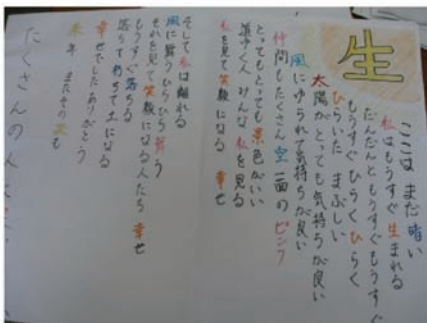 生
ここは まだ暗い
私はもうすぐ生まれる
だんだんともうすぐもうすぐ
もうすぐひらくひらく
ひらいた まぶしい
太陽がとっても気持ちが良い
風にゆられて気持ちが良い
仲間もたくさん空一面のピンク
とってもとっても景色がいい
道ゆく人 みんな私を見る
私を見て笑顔になる 幸せ
そして私は離れる
風に舞うひらひら舞う
それを見て笑顔になる人たち 幸せ
もうすぐ落ちる
落ちて朽ちて土になる
幸せでしたありがとう
来年 またその次も
たくさんの人